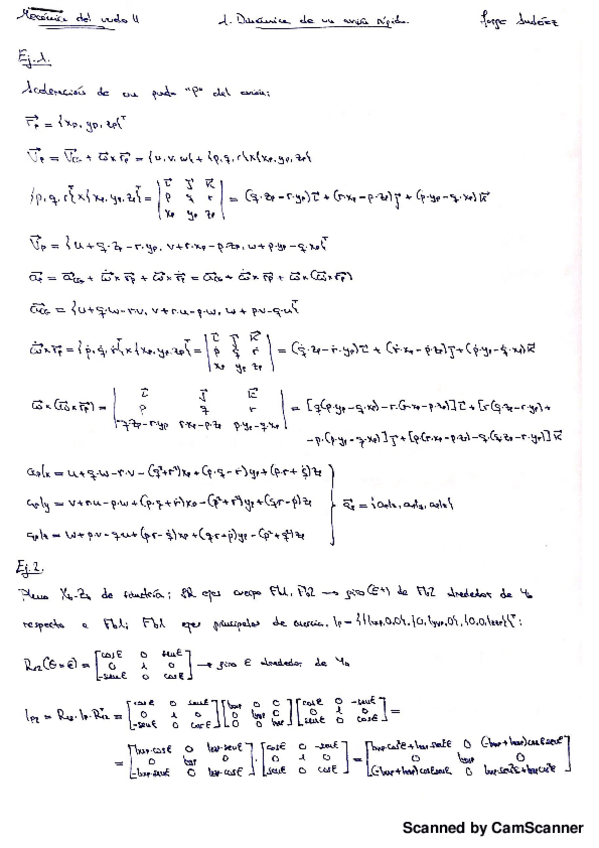 Mecánica del vuelo II 1. Dinámica de un avión rígido. Jorge
Ej.1.
Aceleración de un punto "P" del avión:
r⃗p = {xp, yp, zp}ᵀ
V⃗p = V⃗CG + ω⃗ × r⃗p = {u, v, w} + {p, q, r} × {xp, yp, zp}
{p, q, r}ᵀ × {xp, yp, zp}ᵀ = | i j k ; p q r ; xp yp zp | = (q·zp - r·yp) i + (r·xp - p·zp) j + (p·yp - q·xp) k
V⃗p = {u + q·zp - r·yp, v + r·xp - p·zp, w + p·yp - q·xp}ᵀ
a⃗p = a⃗CG + ω̇ × r⃗p + ω⃗ × ṙp = a⃗CG + ω̇ × r⃗p + ω⃗ × (ω⃗ × r⃗p)
a⃗CG = {u̇ + q·w - r·v, v̇ + r·u - p·w, ẇ + p·v - q·u}ᵀ
ω̇ × r⃗p = {ṗ, q̇, ṙ}ᵀ × {xp, yp, zp}ᵀ = | i j k ; ṗ q̇ ṙ ; xp yp zp | = (q̇·zp - ṙ·yp) i + (ṙ·xp - ṗ·zp) j + (ṗ·yp - q̇·xp) k
ω⃗ × (ω⃗ × r⃗p) = | i j k ; p q r ; q·zp - r·yp r·xp - p·zp p·yp - q·xp | = [q(p·yp - q·xp) - r·(r·xp - p·zp)] i + [r(q·zp - r·yp) +
- p·(p·yp - q·xp)] j + [p(r·xp - p·zp) - q·(q·zp - r·yp)] k
ap|x = u̇ + q·w - r·v - (q² + r²)xp + (p·q - ṙ)yp + (p·r + q̇)zp
ap|y = v̇ + r·u - p·w + (p·q + ṙ)xp - (p² + r²)yp + (q·r - ṗ)zp
ap|z = ẇ + p·v - q·u + (p·r - q̇)xp + (q·r + ṗ)yp - (p² + q²)zp
a⃗p = {ap|x, ap|y, ap|z}
Ej.2.
Plano Xb-Zb de simetría; SR ejes cuerpo Fb1, Fb2 → giro (ε+) de Fb2 alrededor de Yb
respecto a Fb1; Fb1 ejes principales de inercia, Ip = {{Ixxp,0,0}, {0,Iyyp,0}, {0,0,Izzp}}ᵀ:
R12(θ=ε) = [cosε 0 senε ; 0 1 0 ; -senε 0 cosε] → giro ε alrededor de Yb
Ip2 = R12·Ip·R12ᵀ = [cosε 0 senε ; 0 1 0 ; -senε 0 cosε] [Ixxp 0 0 ; 0 Iyyp 0 ; 0 0 Izzp] [cosε 0 -senε ; 0 1 0 ; senε 0 cosε] =
= [Ixxp·cosε 0 Izzp·senε ; 0 Iyyp 0 ; -Ixxp·senε 0 Izzp·cosε] · [cosε 0 -senε ; 0 1 0 ; senε 0 cosε] = [Ixxp·cos²ε + Izzp·sen²ε 0 (-Ixxp + Izzp)cosε senε ; 0 Iyyp 0 ; (-Ixxp + Izzp)cosε senε 0 Ixxp·sen²ε + Izzp·cos²ε]
Scanned by CamScanner